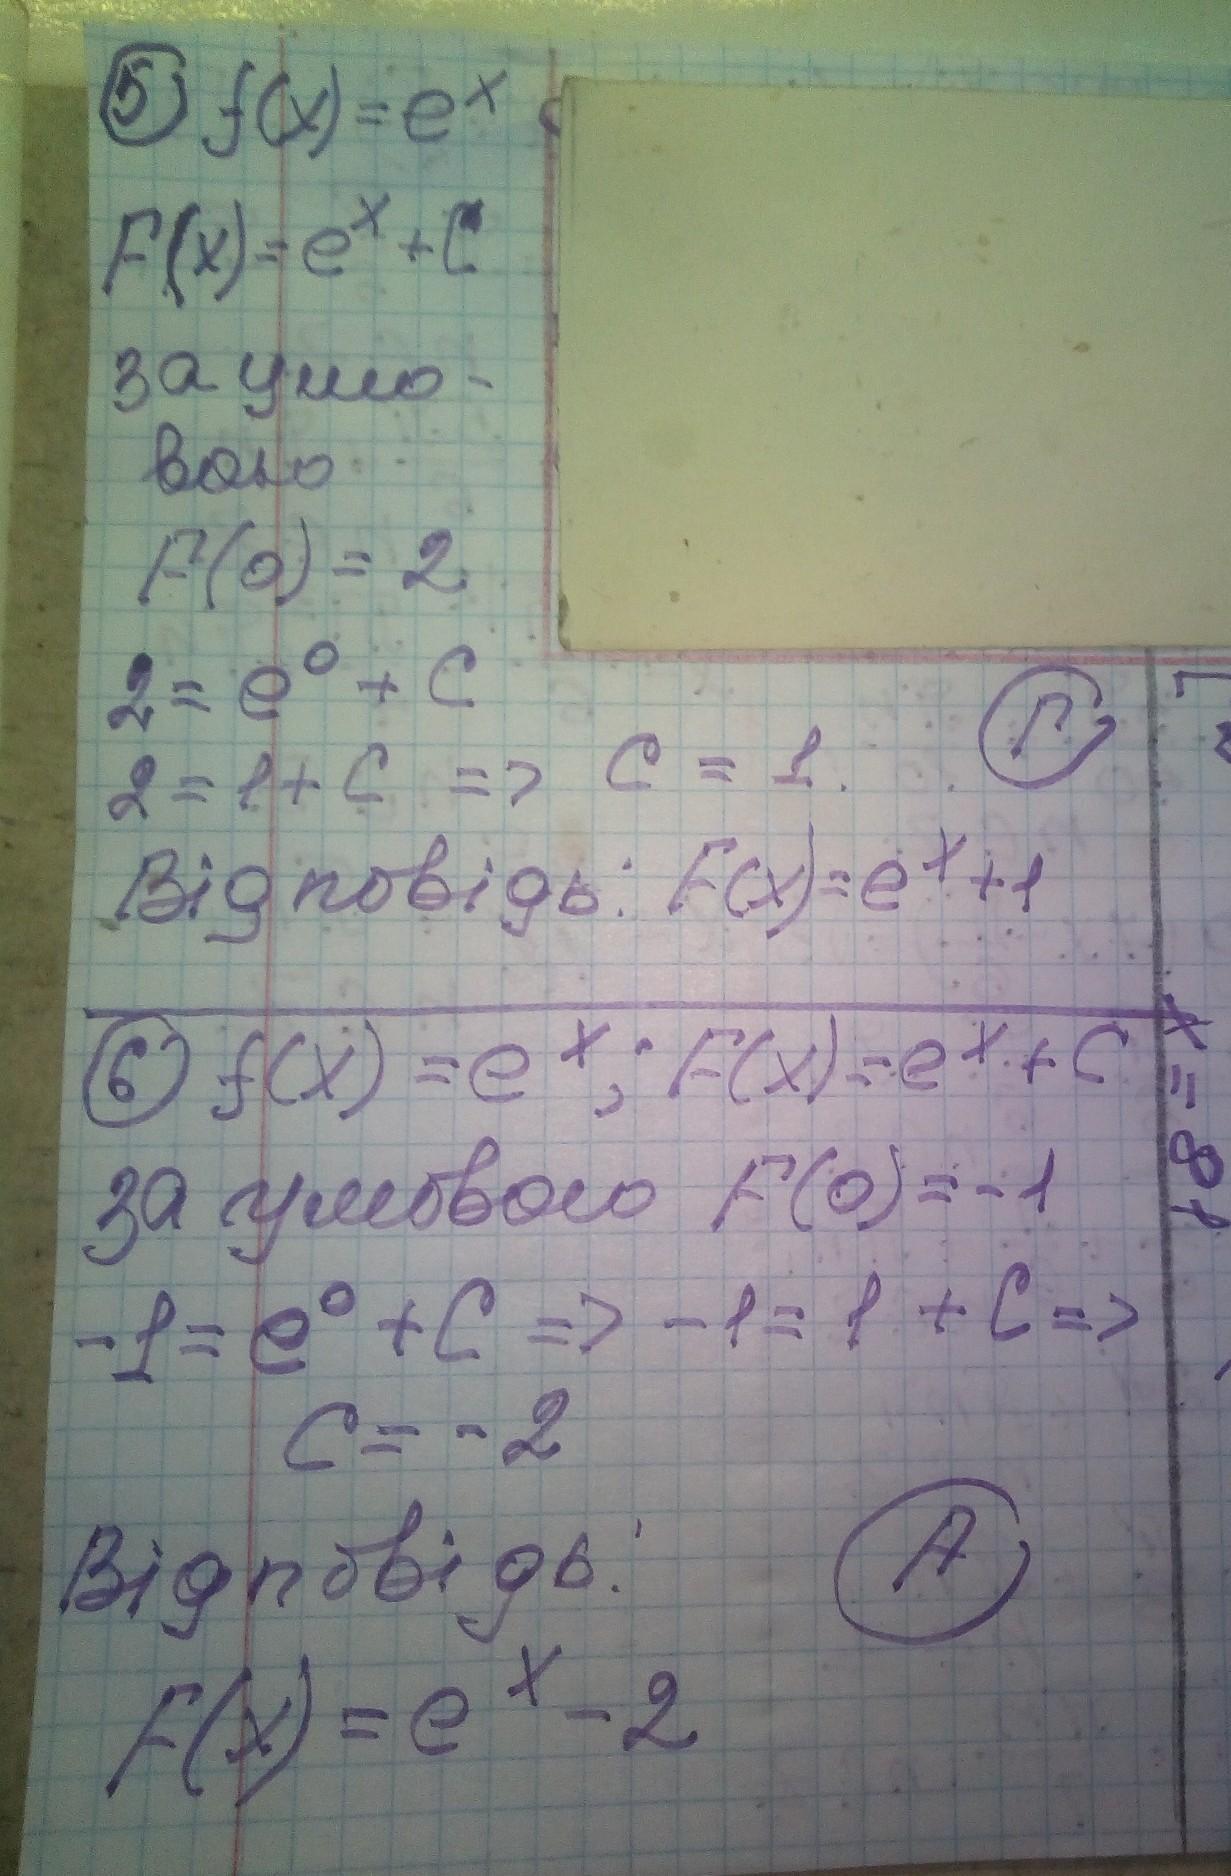 5 f(x) = e^x
F(x) = e^x + C
за умо-
вою
F(0) = 2
2 = e^0 + C
2 = 1 + C => C = 1.
Г
Відповідь: F(x) = e^x + 1
6 f(x) = e^x; F(x) = e^x + C
за умовою F(0) = -1
-1 = e^0 + C => -1 = 1 + C =>
C = -2
Відповідь:
A
F(x) = e^x - 2